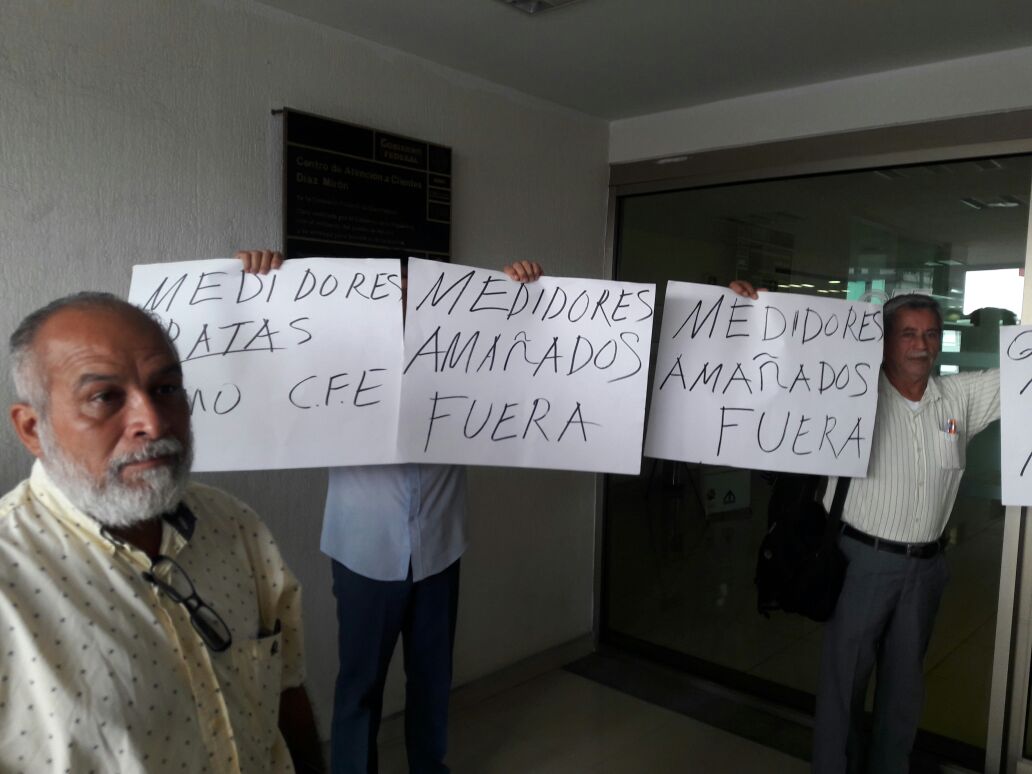 GOBIERNO
FEDERAL
Centro de Atención a Clientes
Díaz Mirón
MEDIDORES
RATAS
C.F.E
MEDIDORES
AMAÑADOS
FUERA
MEDIDORES
AMAÑADOS
FUERA